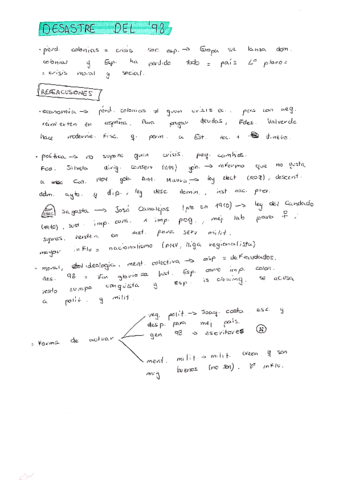 DESASTRE DEL '98
· pérd. colonias = crisis soc. esp. → Europa se lanza dom.
colonial y Esp. ha perdido todo = país 2º plano =
= crisis moral y social.
REPERCUSIONES
· economía → pérd. colonias ≠ gran crisis a. pero con neg.
reinvierten en españa. Para pagar deudas, Fdez. Valverde
hace moderni. fisc. q. perm. a Est. rec. + dinero.
· política → no supone gran crisis. peq. cambios.
Fco. Silvela dirig. conserv. gob. → reforma que no gusta
a Con. nev gob. Ant. Maura → ley elect (1907), descent.
adm. ayto. y dip., ley desc. domin., inst. nac. prev.
Sagasta → José Canalejas (pte en 1910) → ley del Candado
(1910), sust. imp. com. x imp. prog., mej. lab. para
supres. exención en met. para serv. milit.
mayor influ. = nacionalismo (PNV, Lliga regionalista)
· moral, ideología, ment. colectiva → esp = defraudados.
des. 98 = fin hist. Esp. como imp. colon.
resto europa conquista y esp. se acusa
a polít. y milit.
= forma de actuar
reg. polít → Joaq. costa esc. y
desp. para mej. país.
gen 98 → escritores
ment. milit. → milit. creen q son
muy buenos (no son). influ.